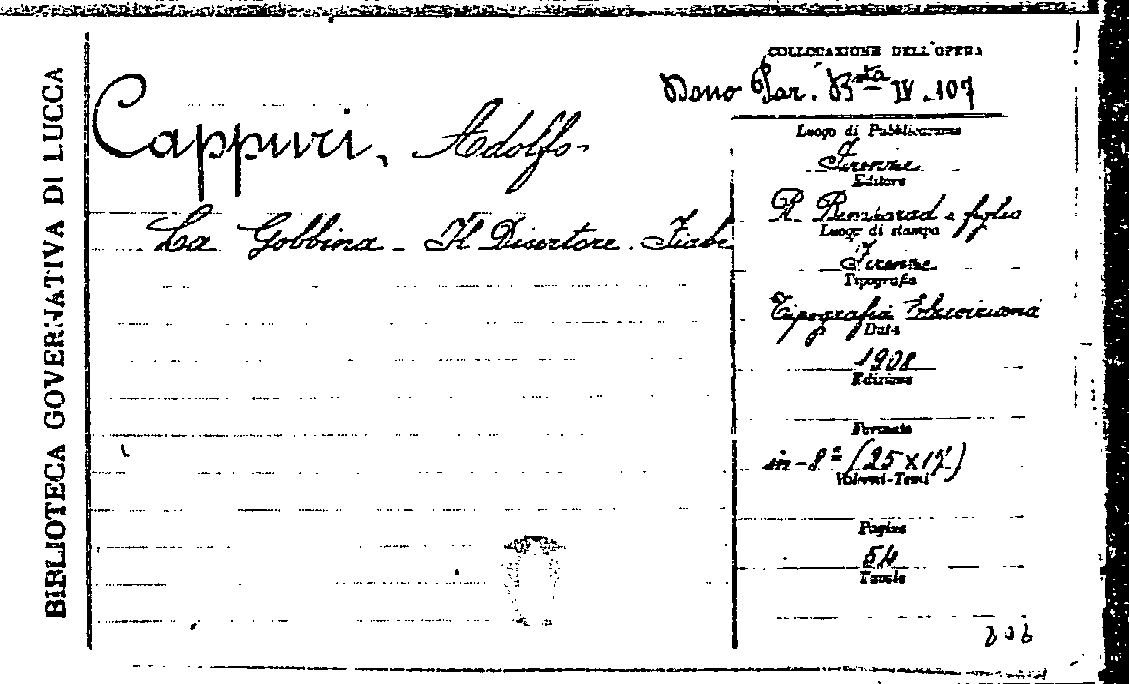 BIBLIOTECA GOVERNATIVA DI LUCCA
Cappuri, Adolfo-
La Gobbina - Il Disertore. Fiabe
COLLOCAZIONE DELL'OPERA
Dono Par. Bta IV. 107
Luogo di Pubblicazione
Firenze
Editore
R. Bemporad e figlio
Luogo di stampa
Firenze
Tipografia
Tipografia
Data
1908
Edizione
Formato
in-8º (25 x 17)
Volumi-Tomi
Pagine
54
Tavole